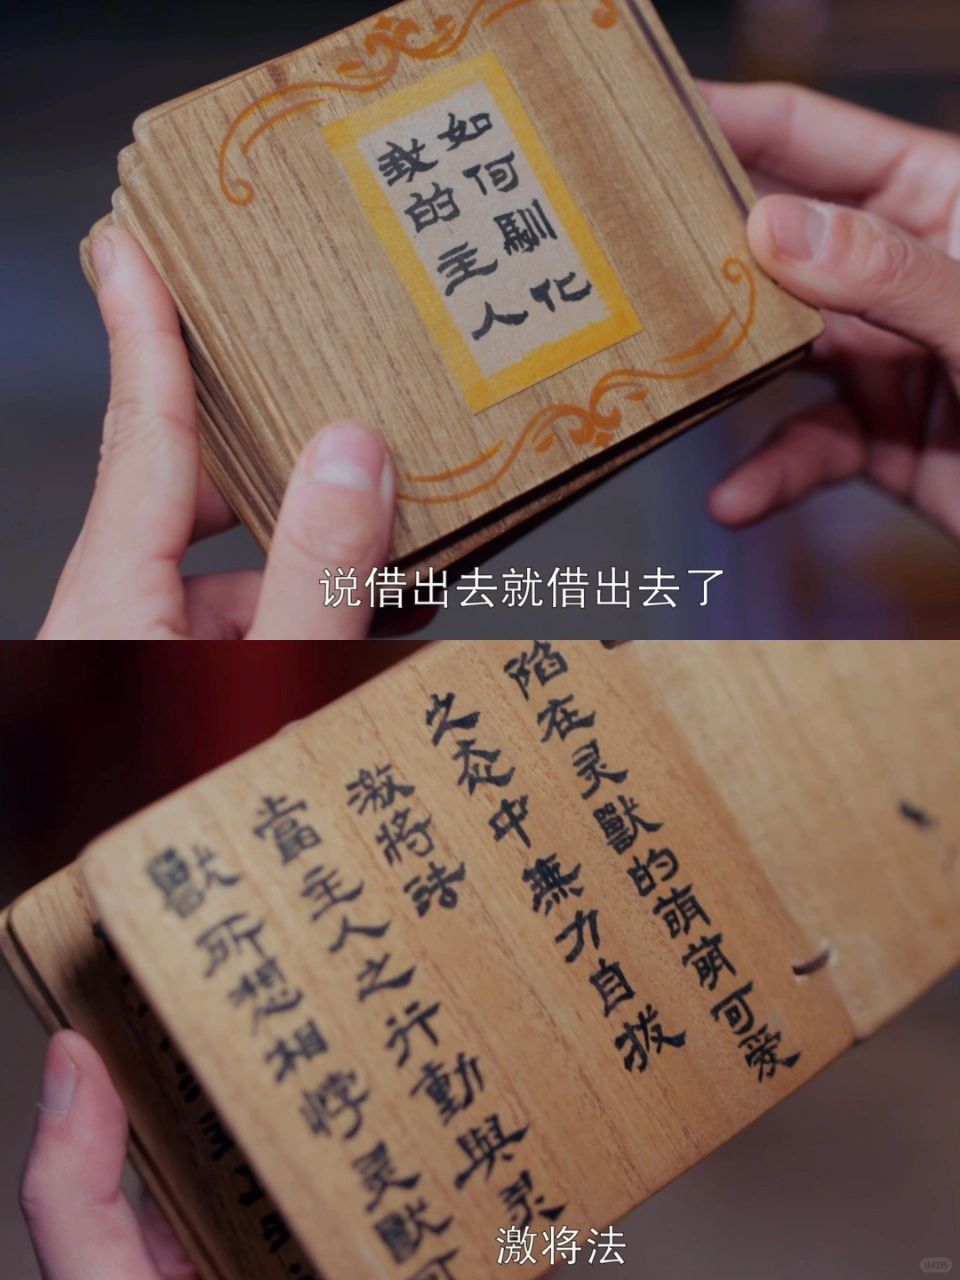 如何馴化
我的主人
说借出去就借出去了
陷在灵獸的萌萌可愛
之态中無力自拔
激將法
當主人之行動與灵
獸所想相悖灵獸可
激将法
小红书